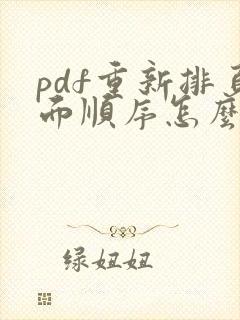 pdf重新排頁
面順序怎麼
绿妞妞